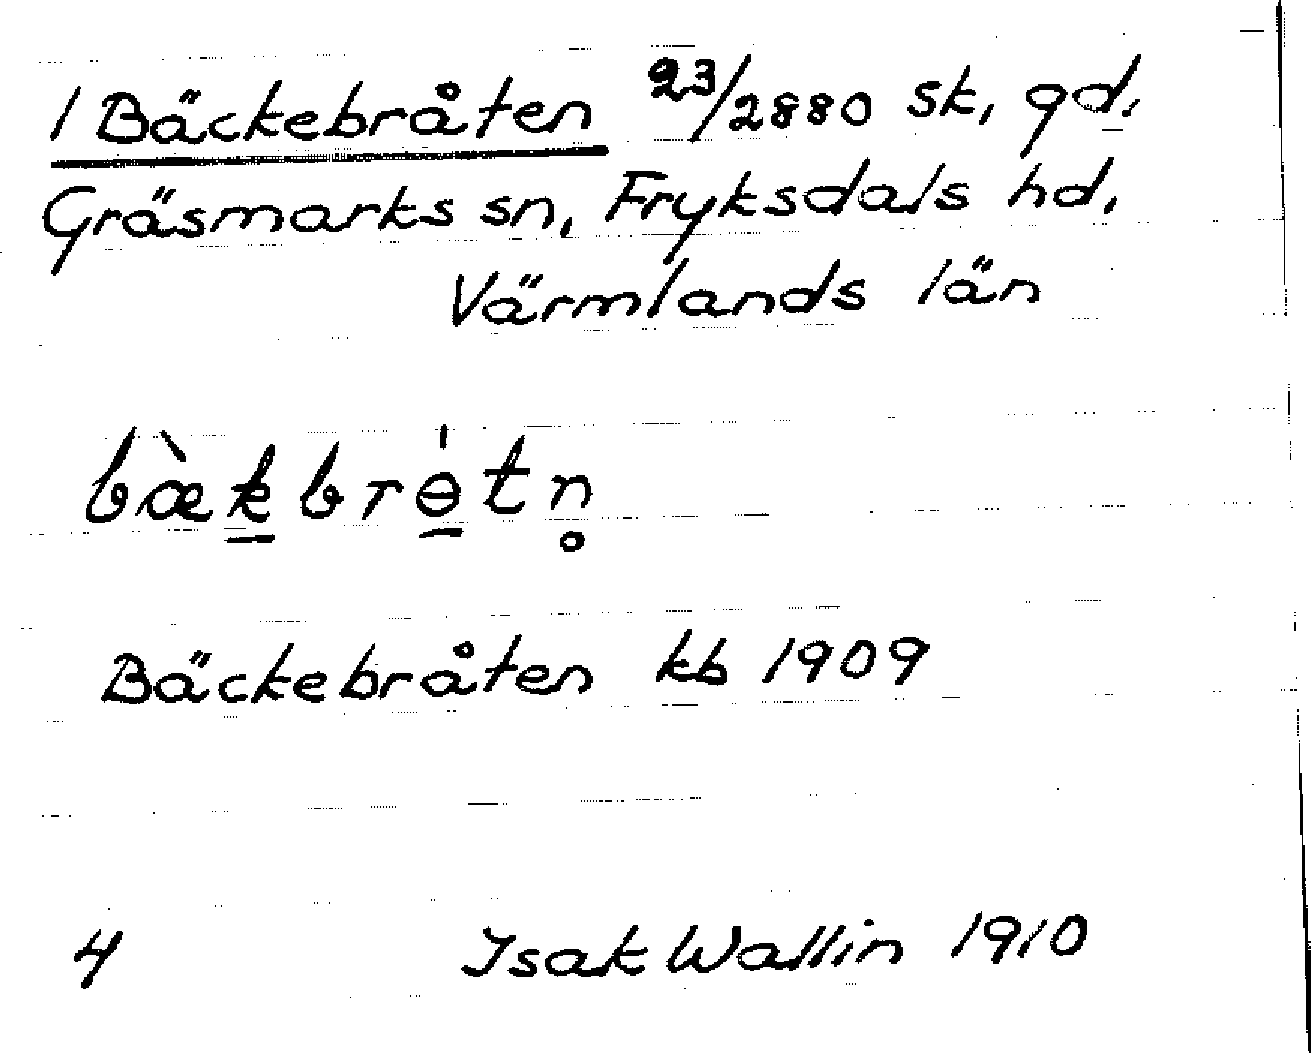 1 Bäckebråten 23/2880 sk, gd.
Gräsmarks sn, Fryksdals hd,
Värmlands län
bæ̀k̲brɵ̲́tn̥
Bäckebråten kb 1909
4 Isak Wallin 1910